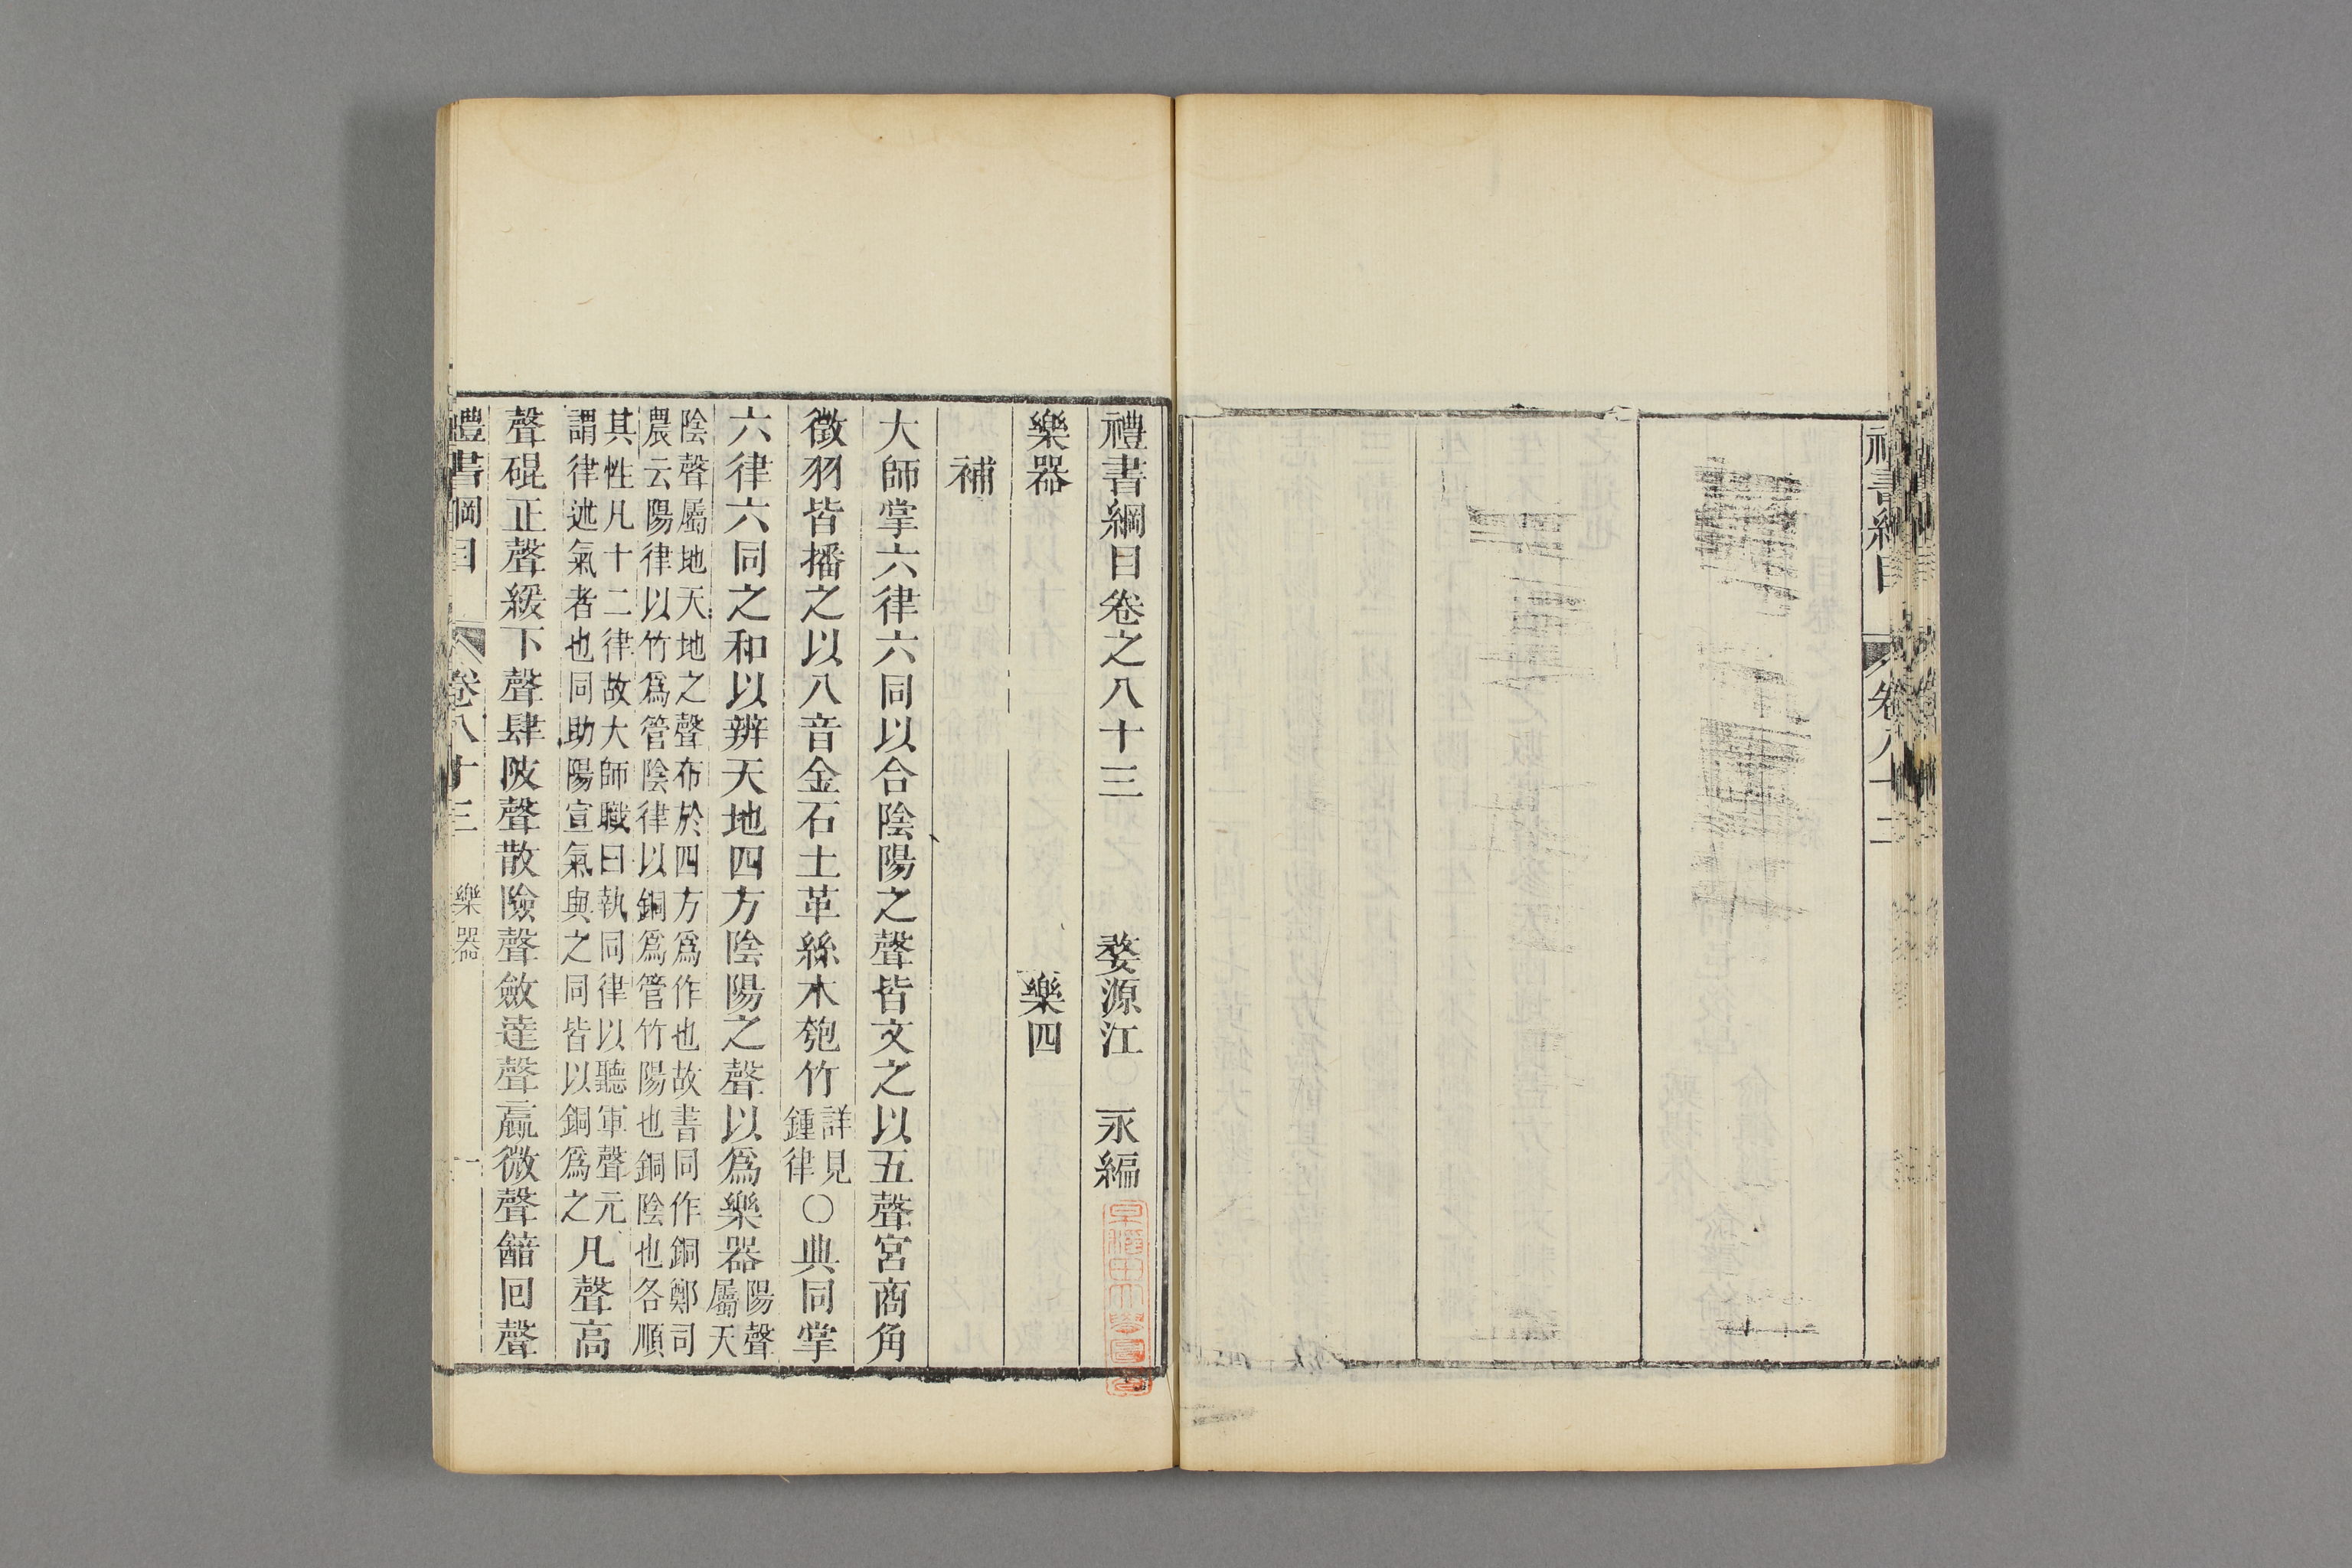 禮書綱目 卷八十二
禮書綱目卷之八十三 婺源江 永編
樂器 樂四
補
大師掌六律六同以合陰陽之聲皆文之以五聲宮商角
徵羽皆播之以八音金石土革絲木匏竹詳見鍾律○典同掌
六律六同之和以辨天地四方陰陽之聲以爲樂器陽聲屬天
陰聲屬地天地之聲布於四方爲作也故書同作銅鄭司
農云陽律以竹爲管陰律以銅爲管竹陽也銅陰也各順
其性凡十二律故大師職曰執同律以聽軍聲元
謂律述氣者也同助陽宣氣與之同皆以銅爲之凡聲高
聲硍正聲緩下聲肆陂聲散險聲斂達聲贏微聲韽回聲
禮書綱目 卷八十三 樂器 一
早稻田大學圖書